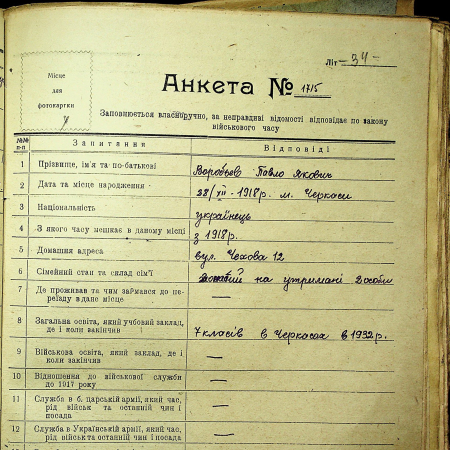 Літ – 34 –
Місце
для
фотокартки
Анкета № 1715
Заповнюється власноручно, за неправдиві відомості відповідає по закону
військового часу
№№ п-п
Запитання
Відповіді
1 Прізвище, ім'я та по-батькові Воробьев Павло Якович
2 Дата та місце народження 28/XII - 1918 р. м. Черкаси
3 Національність українець
4 З якого часу мешкає в даному місці з 1918 р.
5 Домашня адреса вул. Чехова 12
6 Сімейний стан та склад сім'ї на утримані 2 особи
7 Де проживав та чим займався до переїзду в дане місце —
8 Загальна освіта, який учбовий заклад,
де і коли закінчив 7 класів в Черкасах в 1932 р.
9 Військова освіта, який заклад, де і
коли закінчив —
10 Відношення до військової служби
до 1917 року —
11 Служба в б. царській армії, який час,
рід військ та останній чин і
посада —
12 Служба в Українській армії, який час,
рід військ та останній чин і посада —